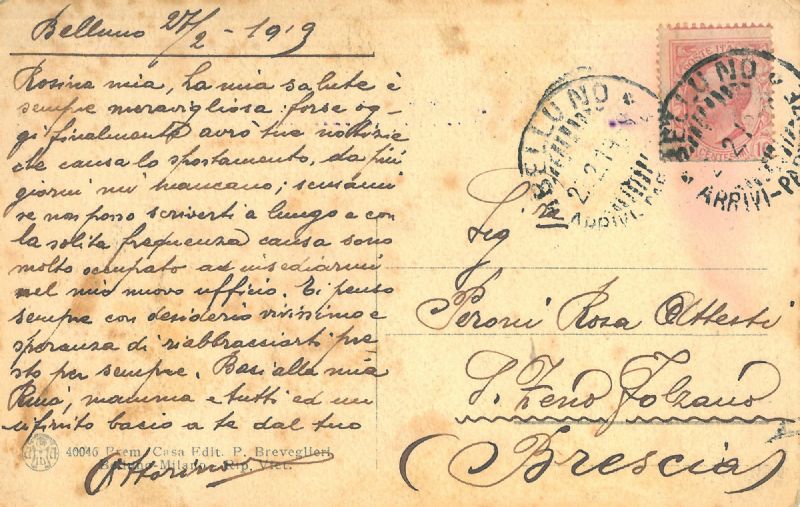 Belluno 27/2-1919
Rosina mia, La mia salute è
sempre meravigliosa: forse og-
gi finalmente avrò tue notizie
che causa lo spostamento, da più
giorni mi mancano; scusami
se non posso scriverti a lungo e con
la solita frequenza causa sono
molto occupato ad insediarmi
nel mio nuovo ufficio. Ti penso
sempre con desiderio vivissimo e
speranza di riabbracciarti pre
sto per sempre. Baci alla mia
mamma e tutti ed un
infinito bacio a te dal tuo
40046 Prem. Casa Edit. P. Breveglieri
Belluno-Milano Rip. Viet.
BELLUNO
ARRIVI-PAR
BELLUNO
ARRIVI-PAR
POSTE ITA
CENTES
10
Sig.ra
Peroni Rosa
S. Zeno Folzano
(Brescia)